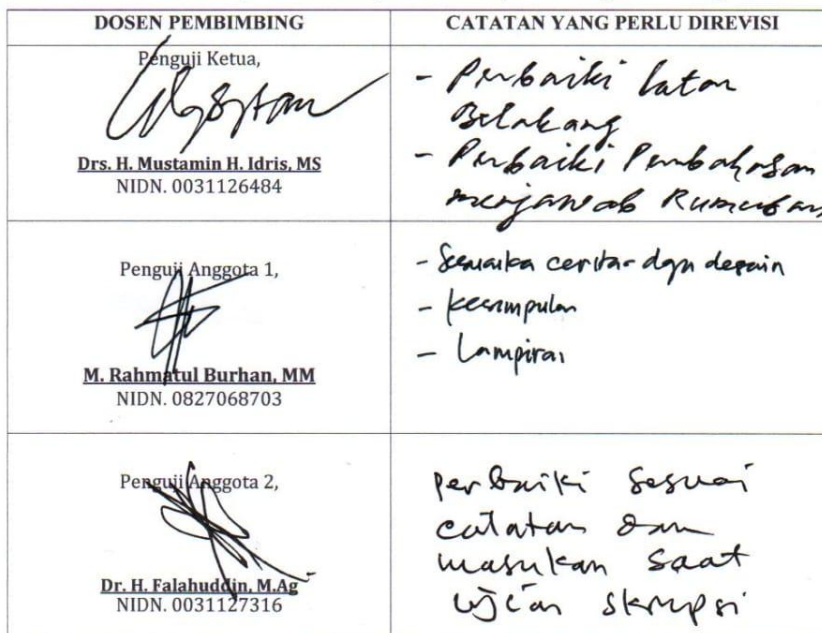 DOSEN PEMBIMBING
CATATAN YANG PERLU DIREVISI
Penguji Ketua,
Drs. H. Mustamin H. Idris, MS
NIDN. 0031126484
- Perbaiki latar
Belakang
- Perbaiki Pembahasan
menjawab Rumusan
Penguji Anggota 1,
M. Rahmatul Burhan, MM
NIDN. 0827068703
- dgn desain
- kesimpulan
- Lampiran
Penguji Anggota 2,
Dr. H. Falahuddin, M.Ag
NIDN. 0031127316
perbaiki sesuai
catatan dan
masukan saat
ujian skripsi